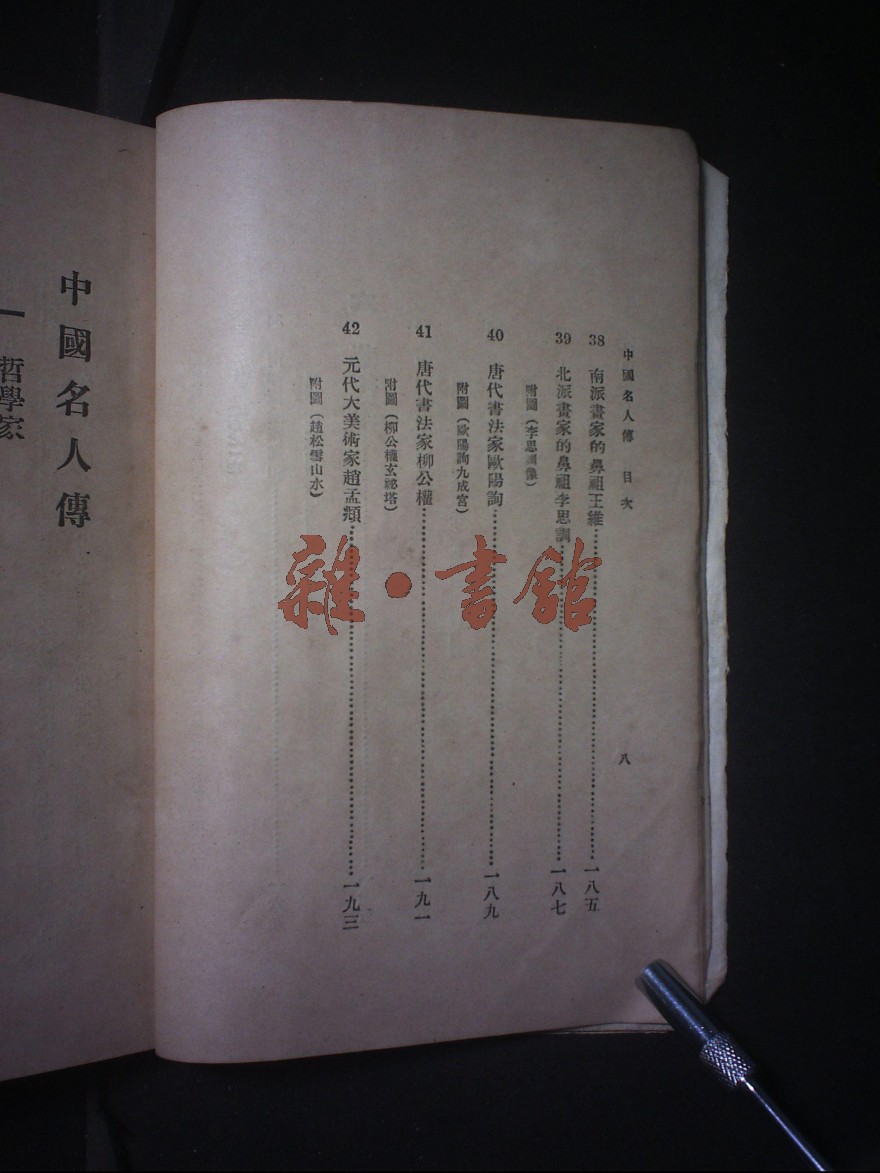 中國名人傳 目次
八
38 南派畫家的鼻祖王維 一八五
39 北派畫家的鼻祖李思訓 一八七
附圖(李思訓像)
40 唐代書法家歐陽詢 一八九
附圖(歐陽詢九成宮)
41 唐代書法家柳公權 一九一
附圖(柳公權玄祕塔)
42 元代大美術家趙孟頫 一九三
附圖(趙松雪山水)
中國名人傳
一 哲學家
雜·書館